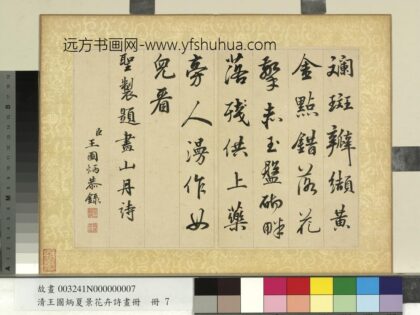 远方书画网-www.yfshuhua.com
斕斑辮纈黄
金點錯落花
擎赤玉盤砌畔
落殘供上藥
旁人漫作女
兒看
聖製題畫山丹詩
臣王圖炳恭錄
故畫 003241N000000007
清王圖炳夏景花卉詩畫冊 冊 7